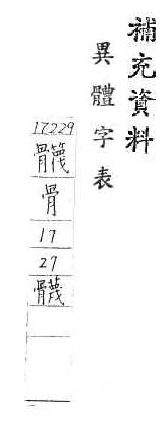 補充資料
異體字表
17229
骨
17
27